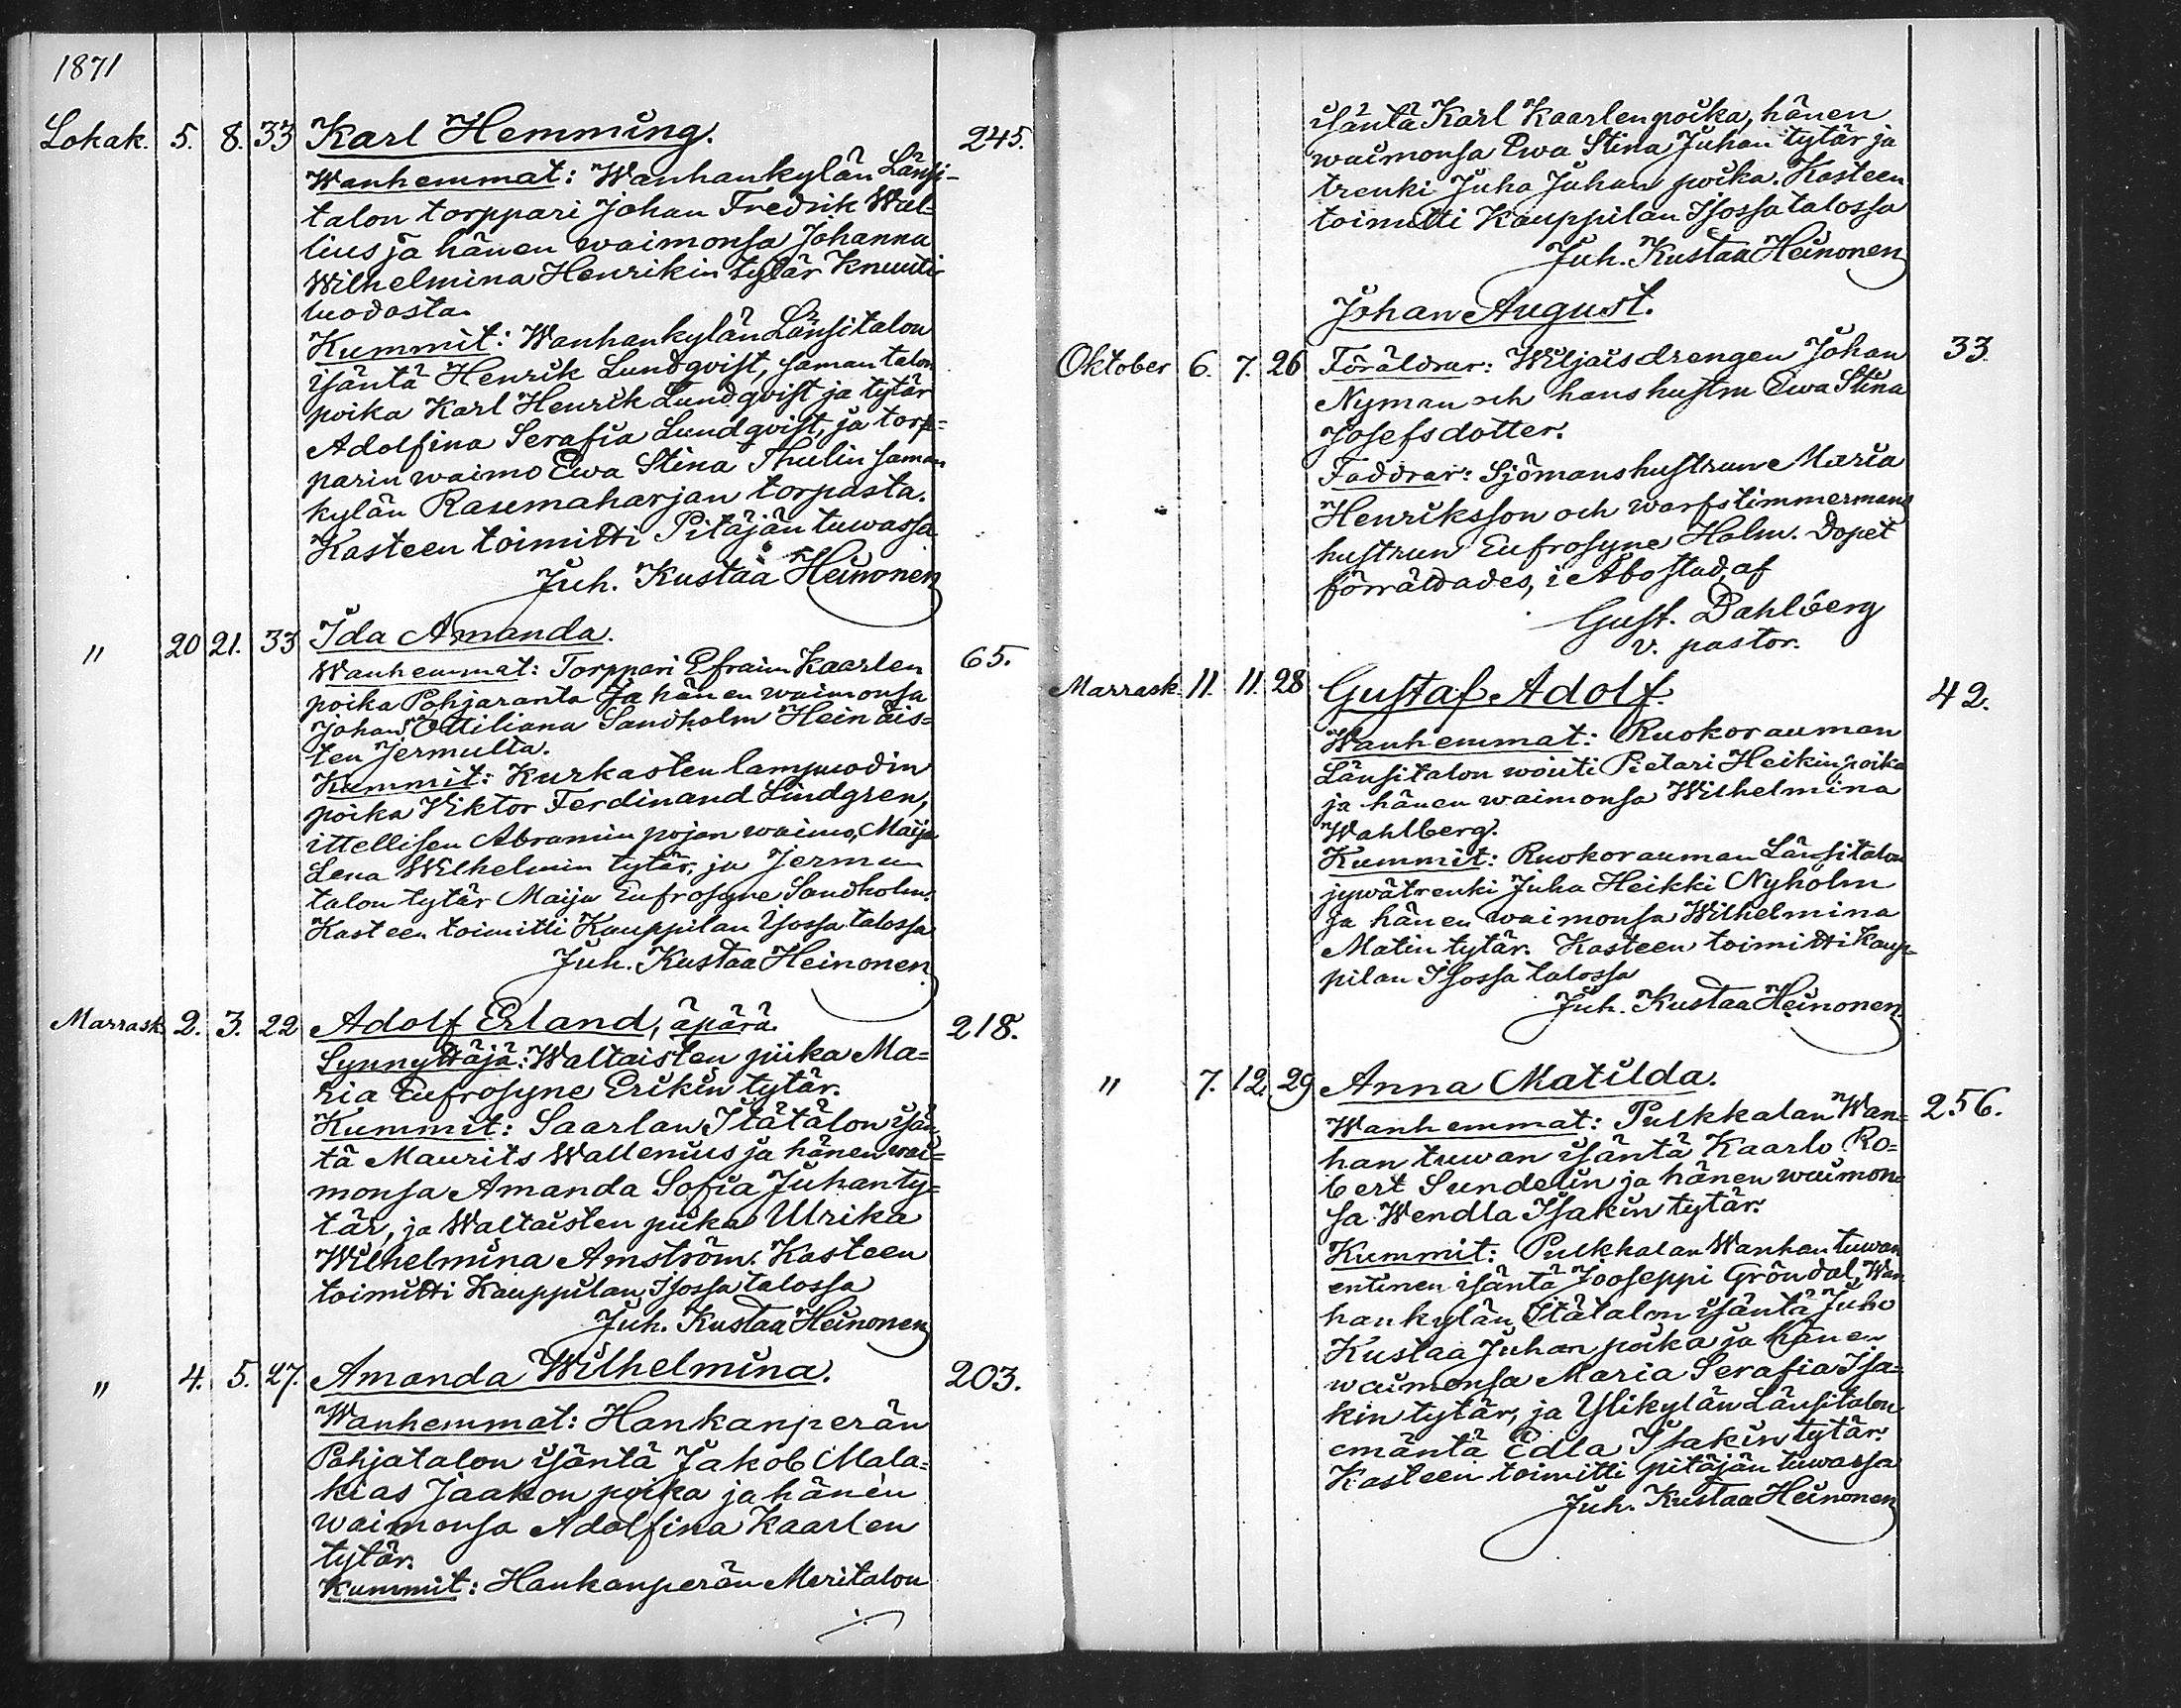 1871
Lokak. 5. 8. 33 Karl Hemming. 245.
Wanhemmat: Wanhankylän Länsi-
talon torppari Johan Fredrik Wal-
lius ja hänen waimonsa Johanna
Wilhelmina Henrikin tytär Knuuti-
luodosta.
Kummit: Wanhankylän Länsitalon
isäntä Henrik Lundqvist, saman talon
poika Karl Henrik Lundqvist ja tytär
Adolfina Serafia Lundqvist, ja torp=
parin waimo Ewa Stina Thulin saman
kylän Raumaharjan torpasta.
Kasteen toimitti Pitäjän tuwassa
Juh. Kustaa Heinonen
" 20 21. 33 Ida Amanda. 65.
Wanhemmat: Torppari Efraim Kaarlen
poika Pohjaranta ja hänen waimonsa
Johan. Ottiliana Sandholm Heinäis=
ten Jermulta.
Kummit: Kurkasten lampuodin
poika Viktor Ferdinand Lindgren,
ittellisen Abramin pojan waimo, Maija
Lena Wilhelmin tytär, ja Jermun
talon tytär Maija Eufrosyne Sandholm.
Kasteen toimitti Kauppilan Isossa talossa
Juh. Kustaa Heinonen
Marrask. 2. 3. 22 Adolf Erland, äpärä. 218.
Synnyttäjä: Waltaisten piika Ma=
ria Eufrosyne Erikin tytär.
Kummit: Saarlan Itätalon isän
tä Maurits Wallenius ja hänen wai=
monsa Amanda Sofia Juhanty=
tär, ja Waltaisten piika Ulrika
Wilhelmina Amström. Kasteen
toimitti Kauppilan Isossa talossa
Juh. Kustaa Heinonen
" 4. 5. 27. Amanda Wilhelmina. 203.
Wanhemmat: Hankanperän
Pohjatalon isäntä Jakob Mala=
kias Jaakon poika ja hänen
waimonsa Adolfina Kaarlen
tytär.
Kummit: Hankanperän Meritalon
isäntä Karl Kaarlen poika, hänen
waimonsa Ewa Stina Juhan tytär ja
trenki Juha Juhan poika. Kasteen
toimitti Kauppilan Isossa talossa
Juh. Kustaa Heinonen
Johan August.
Oktober 6. 7. 26 Föräldrar: Wiljais drengen Johan 33.
Nyman och hans hustru Ewa Stina
Josefsdotter.
Faddrar: Sjömanshustrun Maria
Henriksson och warfstimmermans
hustrun Eufrosyne Holm. Dopet
förrättades, i Åbo stad, af
Gust. Dahlberg
v. pastor.
Marrask. 11. 11. 28 Gustaf Adolf. 42.
Wanhemmat: Ruokorauman
Länsitalon wouti Pietari Heikin poika
ja hänen waimonsa Wilhelmina
Wahlberg.
Kummit: Ruokorauman Länsitalon
jywätrenki Juha Heikki Nyholm
ja hänen waimonsa Wilhelmina
Matin tytär. Kasteen toimitti Kaup-
pilan Isossa talossa
Juh. Kustaa Heinonen
" 7. 12. 29 Anna Matilda. 256.
Wanhemmat: Pulkkalan Wan=
han tuwan isäntä Kaarlo Ro=
bert Sundelin ja hänen waimon=
sa Wendla Isakin tytär.
Kummit: Pulkkalan Wanhan tuwan
entinen isäntä Jooseppi Gröndal, Wan
hankylän Itätalon isäntä Juho
Kustaa Juhan poika ja hänen
waimonsa Maria Serafia Isa=
kin tytär, ja Ylikylän Länsitalon
emäntä Edla Isakin tytär.
Kasteen toimitti pitäjän tuwassa
Juh. Kustaa Heinonen